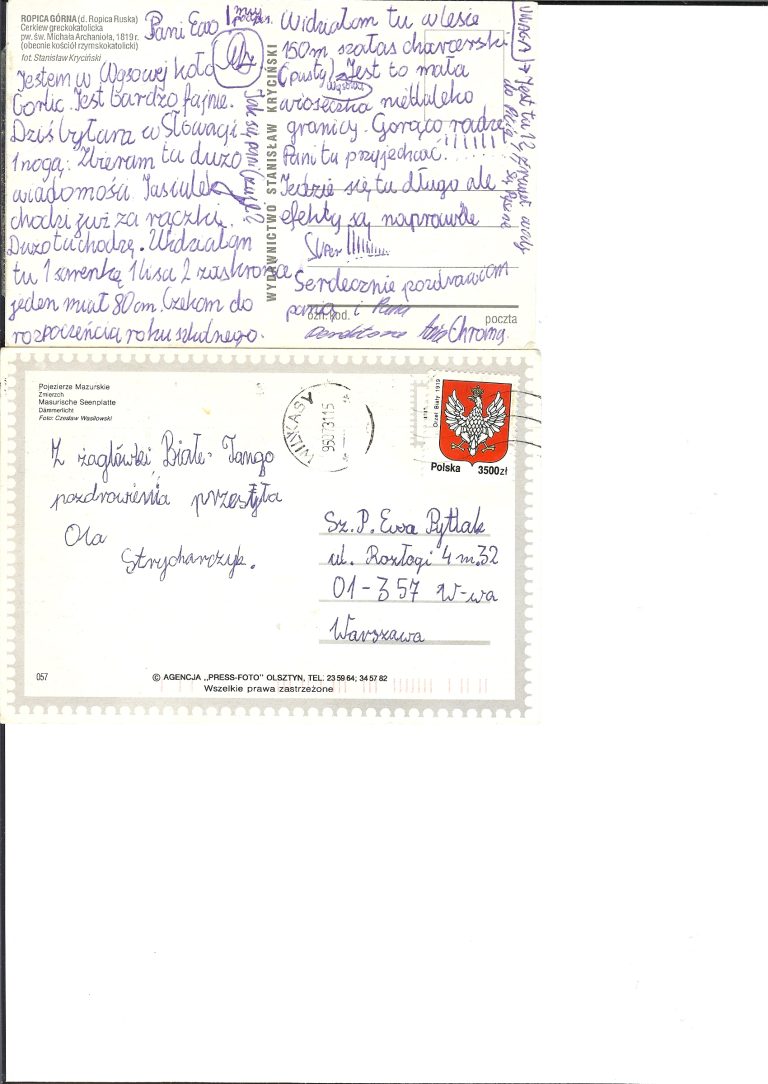 ROPICA GÓRNA (d. Ropica Ruska)
Cerkiew greckokatolicka
pw. św. Michała Archanioła, 1819 r.
(obecnie kościół rzymskokatolicki)
fot. Stanisław Kryciński
Pani Ewo
Jestem w Wysowej koło
Gorlic. Jest bardzo fajnie.
Dziś byłam w Słowacji
1 nogą. Zbieram tu dużo
wiadomości. Jasiulek
chodzi już za rączki.
Dużo tu chodzę. Widziałam
tu 1 sarenkę 1 lisa 2 zaskrońce
jeden miał 80 cm. Czekam do
rozpoczęcia roku szkolnego.
Jak się pani czuje?
WYDAWNICTWO STANISŁAW KRYCIŃSKI
Widziałam tu w lesie
150m szałas harcerski
(pusty). Jest to mała
Wysowa
wioseczka niedaleko
granicy. Gorąco radzę
Pani tu przyjechać!!!!!!!
Jedzie się tu długo ale
efekty są naprawdę
super!!!!!!!
Serdecznie pozdrawiam
panią i
ozn. kod. poczta
Chroma
UWAGA!
Jest tu 12 wody
do picia
Pojezierze Mazurskie
Zmierzch
Masurische Seenplatte
Dämmerlicht
Foto: Czesław Wasilowski
MIŁKASY
Orzeł Biały 1919
Polska 3500zł
Z żaglówki Białe Tango
pozdrowienia przesyła
Ola
Strycharczyk.
Sz. P. Ewa Pytlak
ul. Rozłogi 4 m. 32
01-357 W-wa
Warszawa
057
© AGENCJA „PRESS-FOTO" OLSZTYN, TEL. 23 59 64; 34 57 82
Wszelkie prawa zastrzeżone